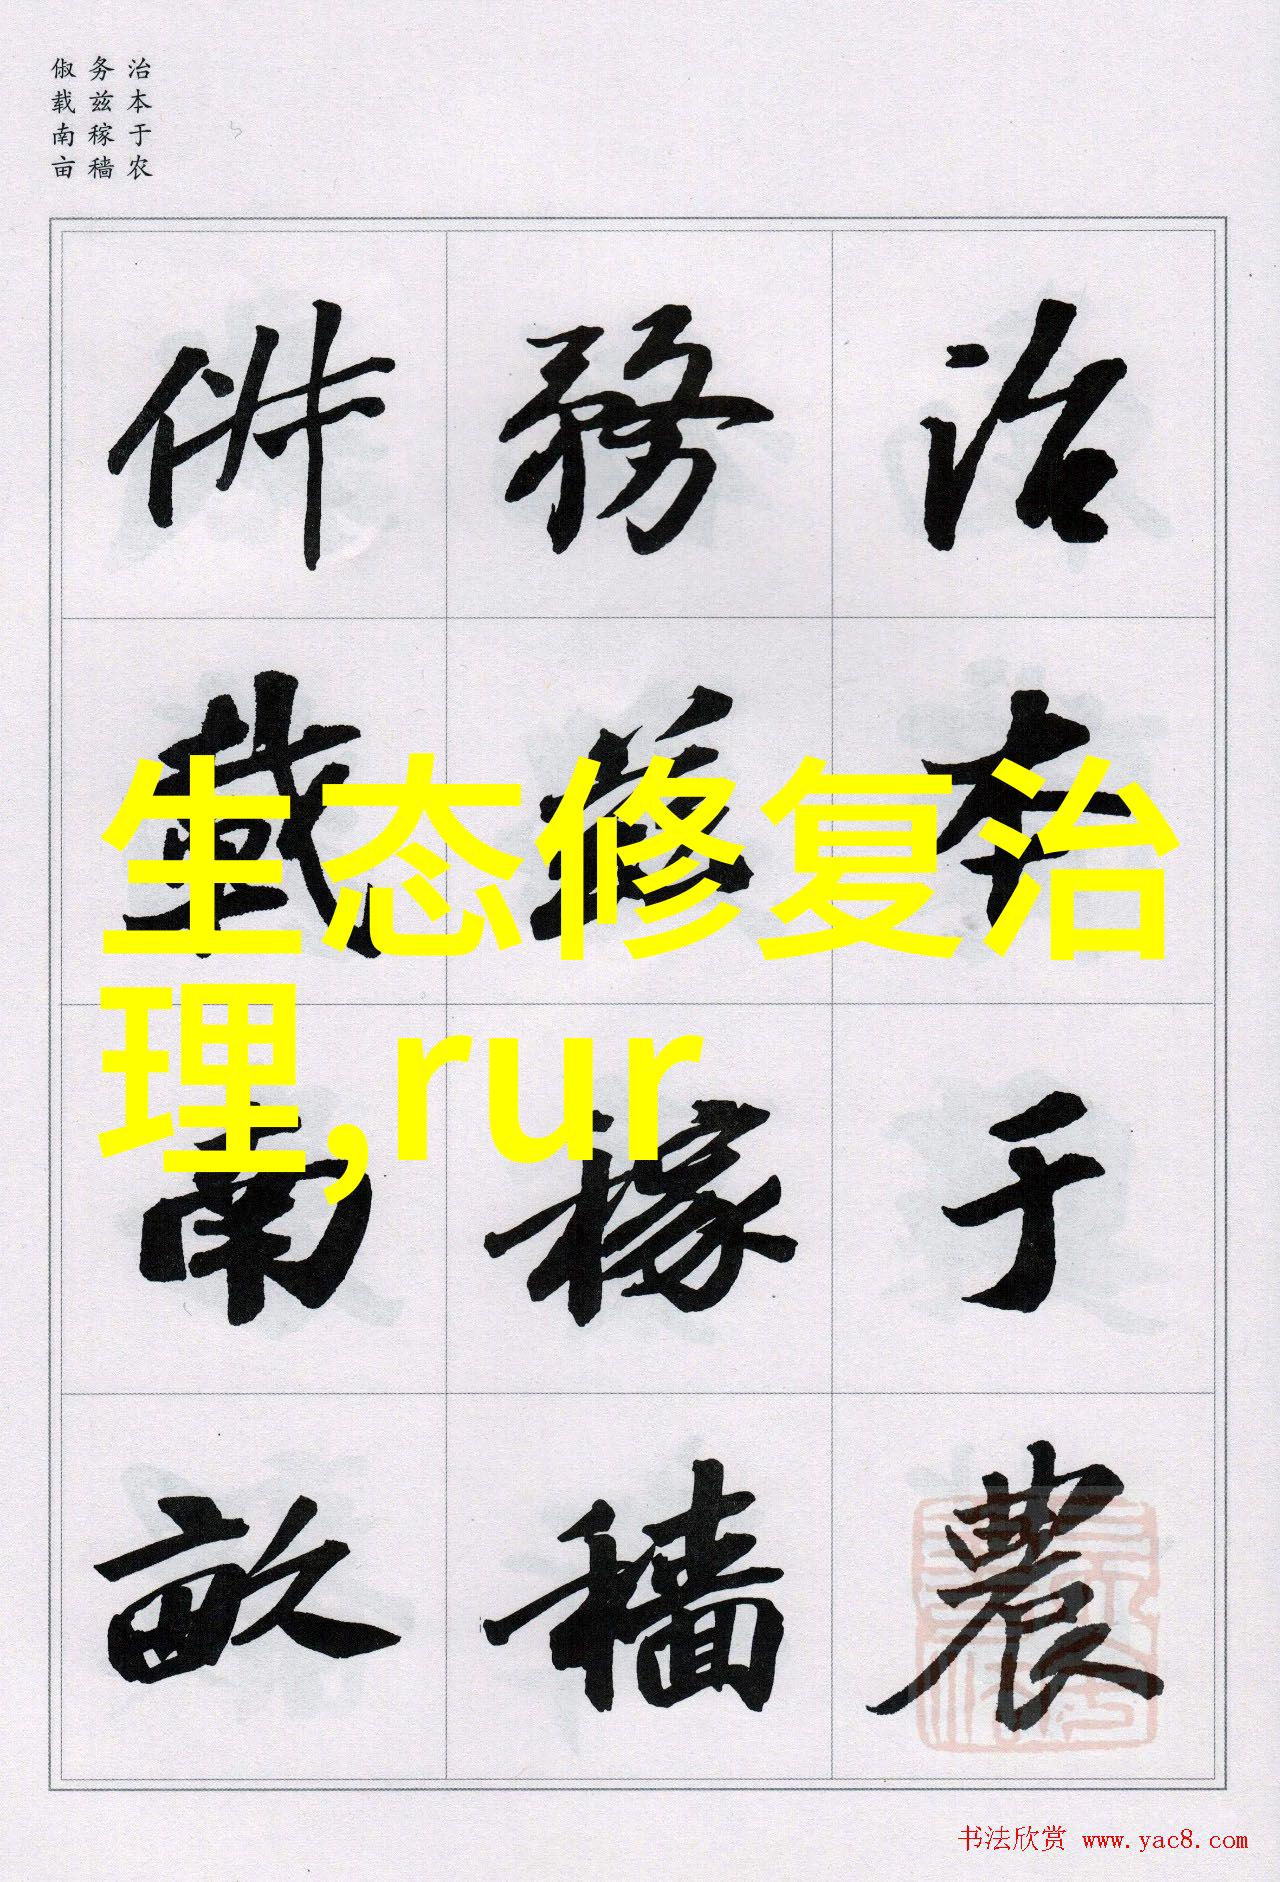 治本于农
务兹稼穑
俶载南亩
治本于農
務茲稼穡
俶載南畝
生态修复治
理,rur
书法欣赏 www.yac8.com